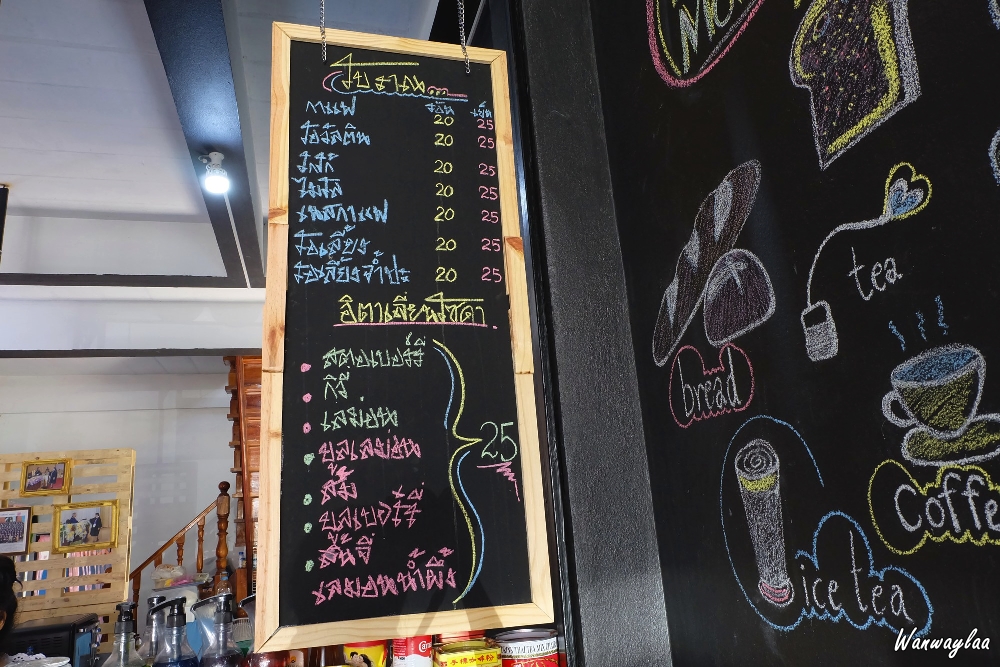 โบราณ
ร้อน เย็น
กาแฟ 20 25
โอวัลติน 20 25
โกโก้ 20 25
ไมโล 20 25
เนสกาแฟ 20 25
โอเลี้ยง 20 25
โอเลี้ยงจ้ำบ๊ะ 20 25
อิตาเลี่ยนโซดา
สตอเบอร์รี่
กีวี
เลม่อน
บลูเลม่อน
ส้ม
บลูเบอร์รี่
ลิ้นจี่
เลมอนน้ำผึ้ง
25
tea
bread
Coffe
ice tea
Wanwaylaa